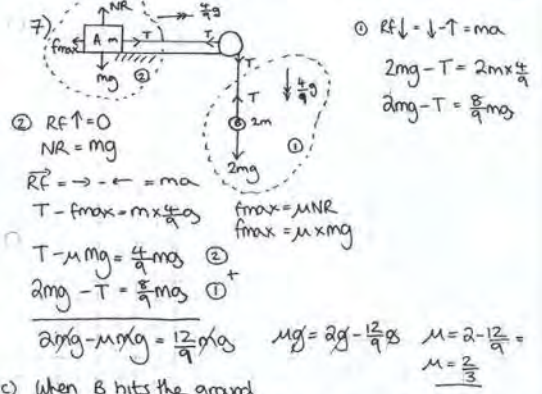 7)
NR
4/9 g
fmax
A m
T
T
mg
②
T
T
4/9 g
B 2m
①
2mg
① RF↓ = ↓-↑ = ma
2mg - T = 2m x 4/9
2mg - T = 8/9 mg
② RF↑ = 0
NR = mg
RF = → - ← = ma
T - fmax = m x 4/9 g
fmax = μNR
fmax = μ x mg
T - μmg = 4/9 mg ②
2mg - T = 8/9 mg ① +
2mg - μmg = 12/9 mg
μg = 2g - 12/9 g
μ = 2 - 12/9 =
μ = 2/3
c) When B hits the ground